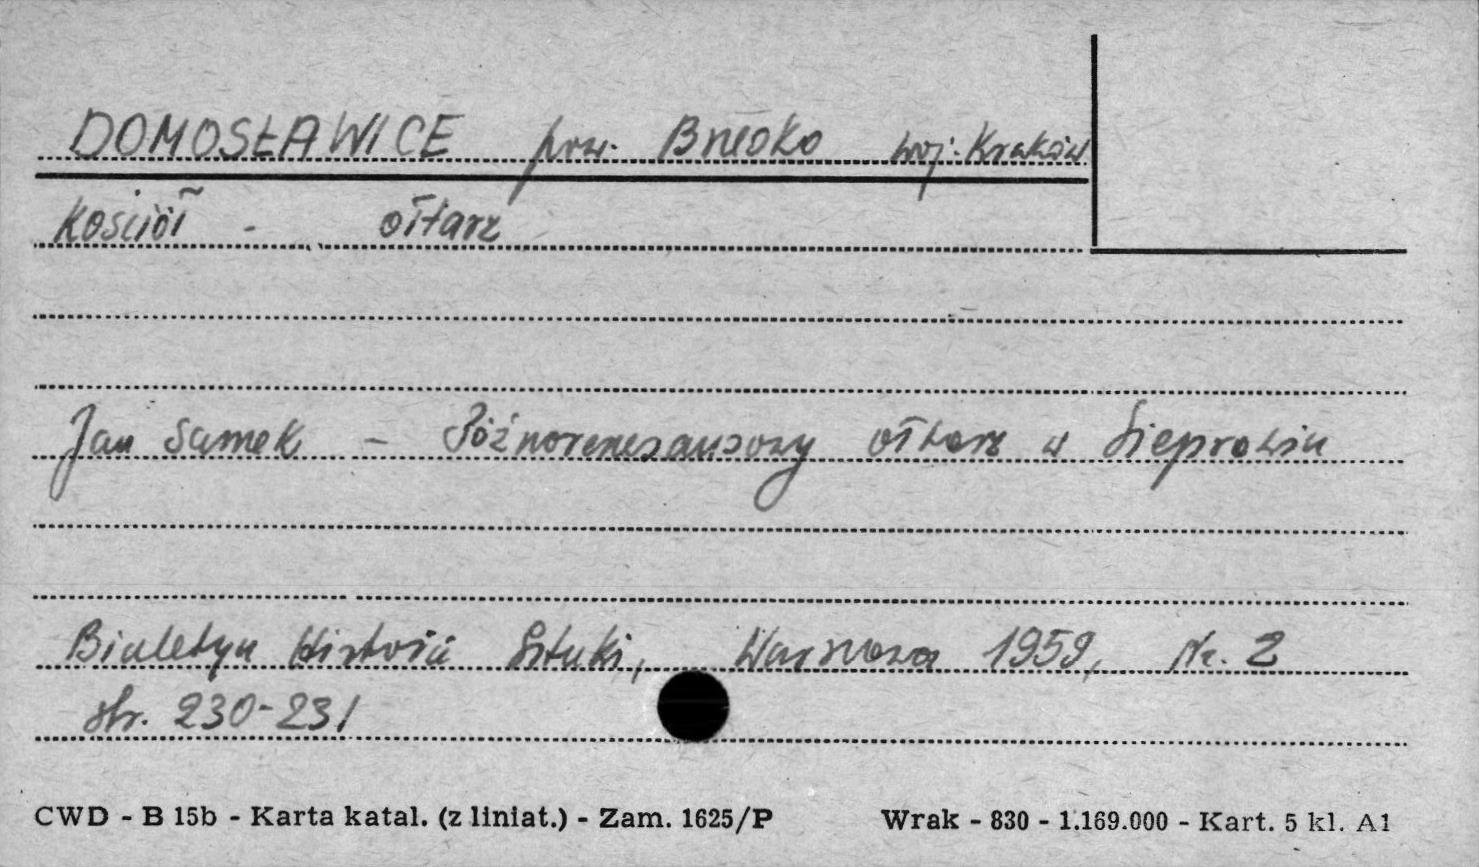 DOMOSŁAWICE pow. Brzesko woj. Kraków
Kościół - ołtarz
Jan Samek - Późnorenesansowy ołtarz w Sieprawiu
Biuletyn Historii Sztuki, Warszawa 1959, Nr. 2
str. 230-231
CWD - B 15b - Karta katal. (z liniat.) - Zam. 1625/P Wrak - 830 - 1.169.000 - Kart. 5 kl. A1